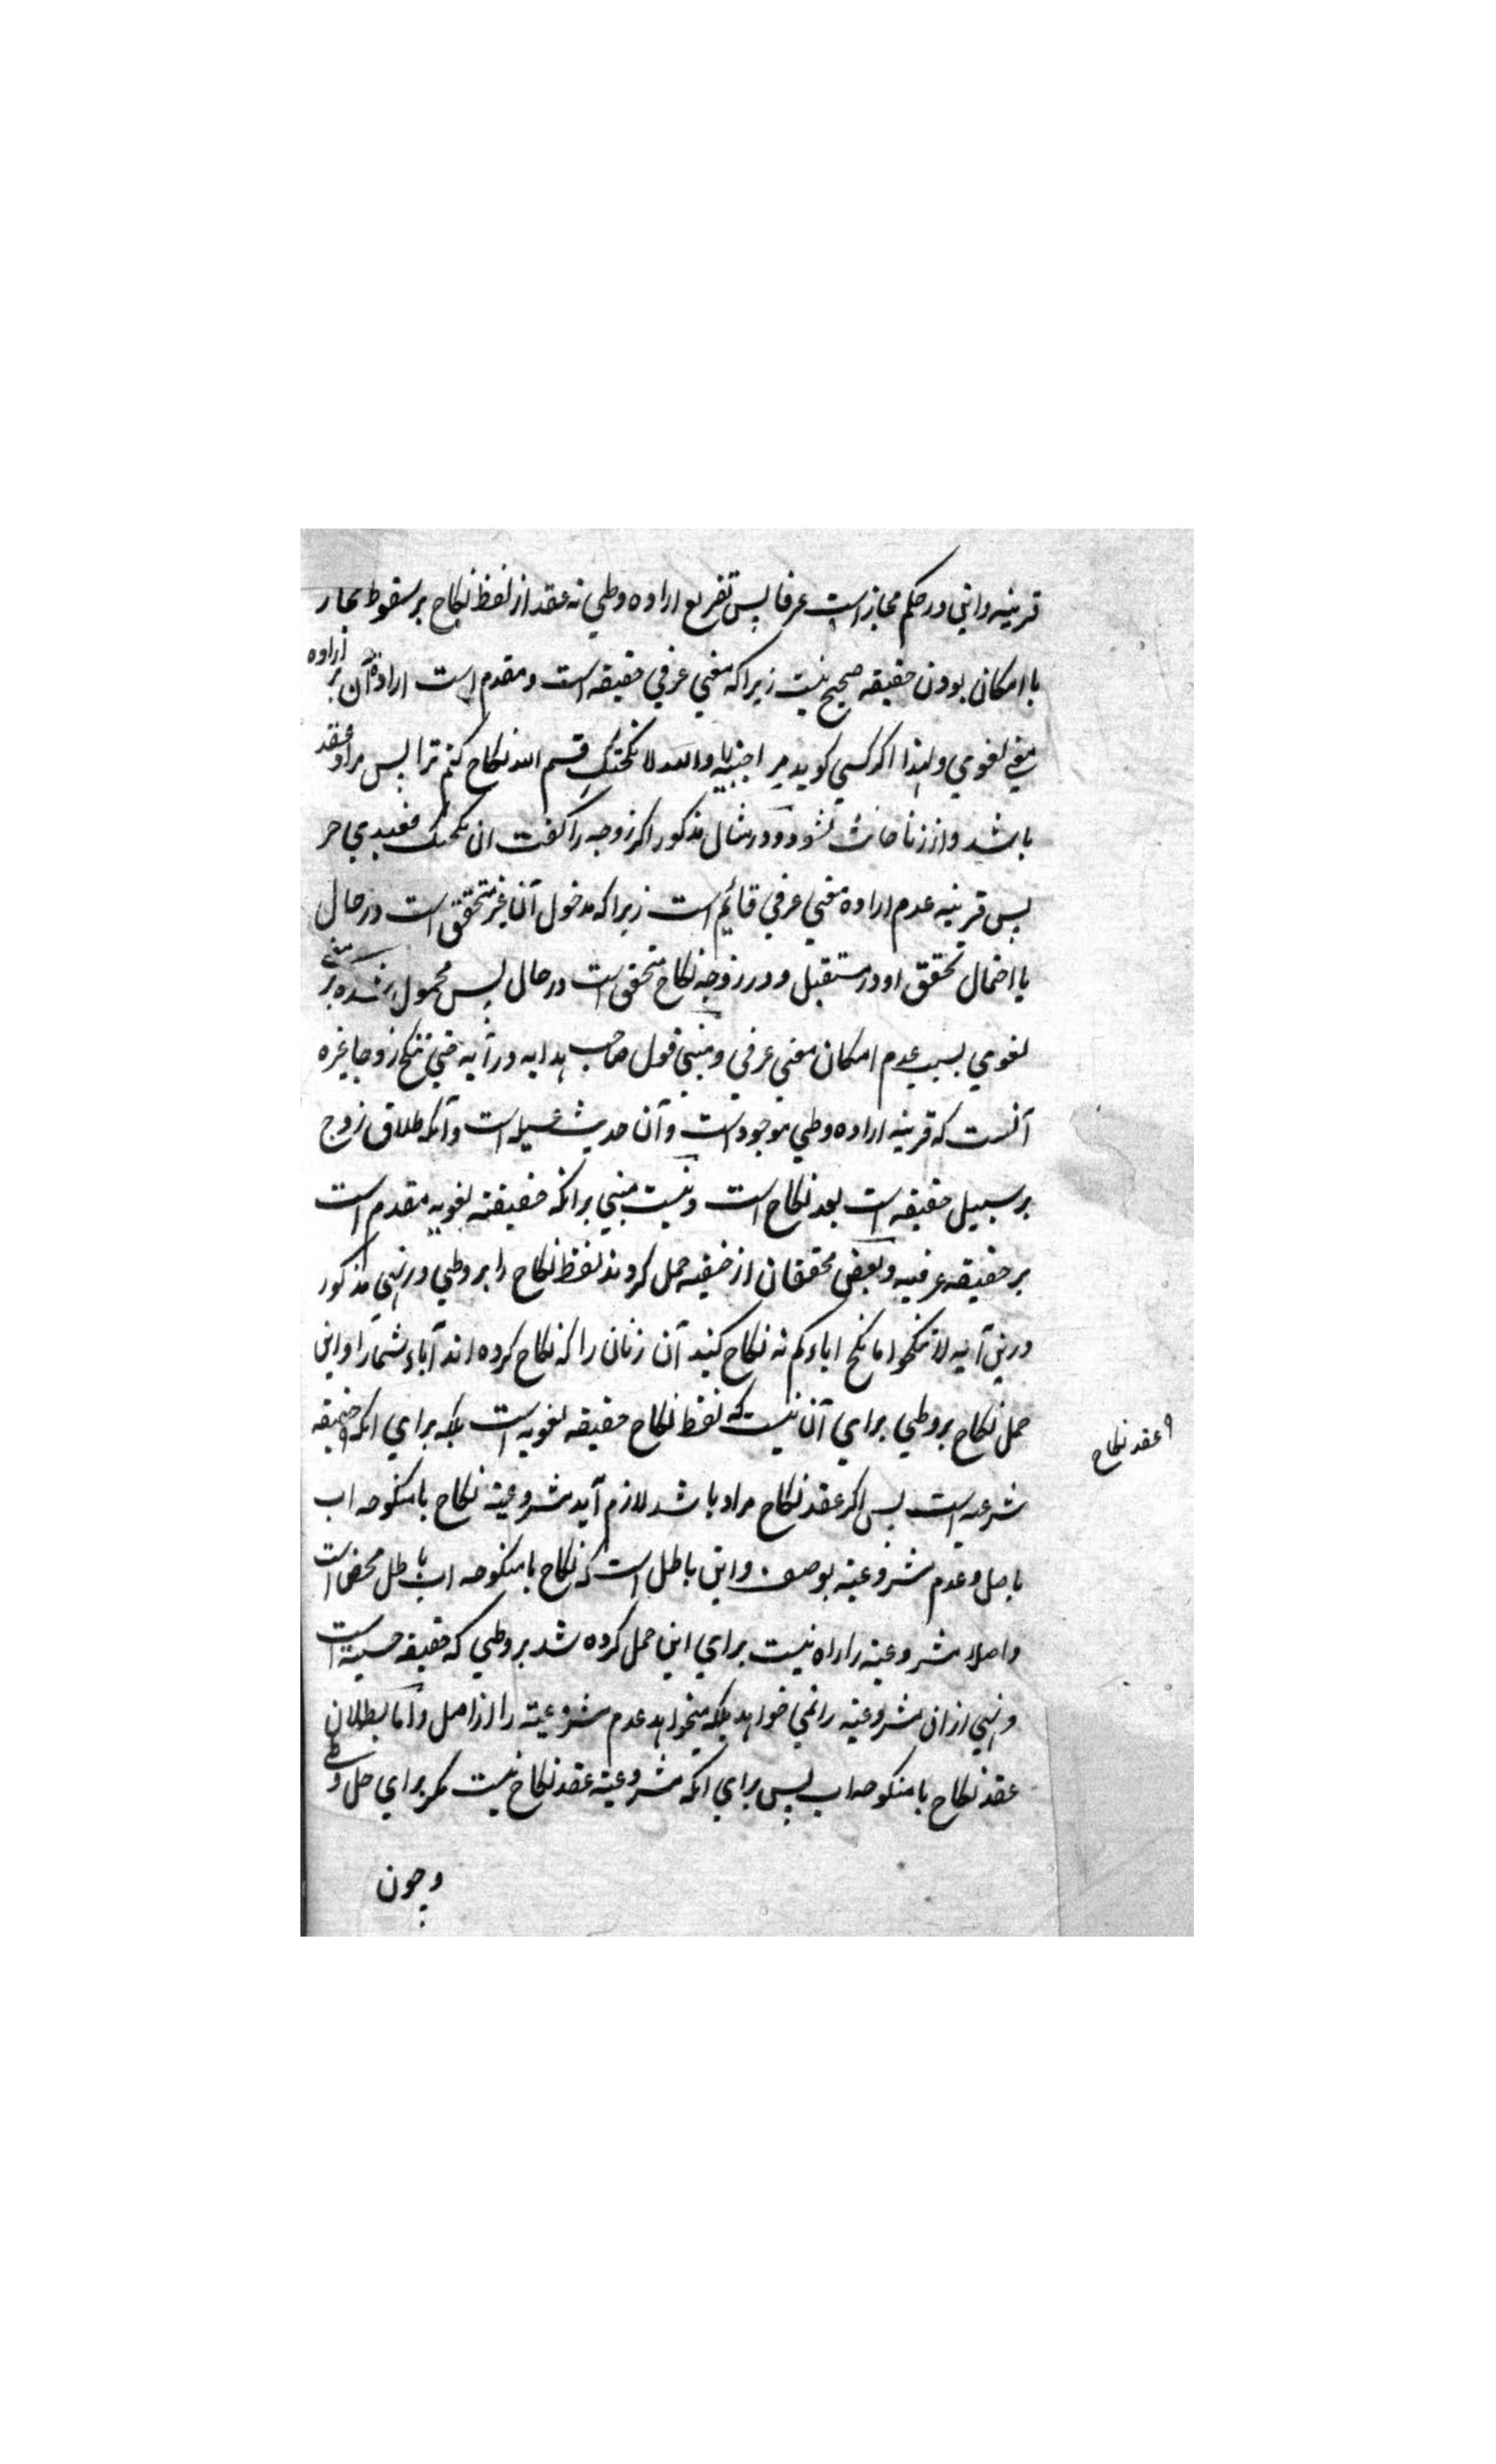 قرینه و این در حکم مجاز است عرفا پس تفریع اراده وطی نه عقد از لفظ نکاح بر سقوط مجاز
با امکان بودن حقیقه صحیح نیست زیرا که معنی عرفی حقیقه است و مقدم است ارادة آن بر اراده
معنی لغوی و لهذا اکر کسی کوید مر اجنبیه را والله لا نکحتک قسم الله نکاح کنم ترا پس مراد عقد
باشد و از زنا حانث نشود و در مثال مذکور اکر زوجه را کفت ان نکحتک فعبدی حر
پس قرینه عدم اراده معنی عرفی قائم است زیرا که مدخول آن غیر متحقق است در حال
با احتمال تحقق او در مستقبل و در زوجه نکاح متحقق است در حال پس محمول شده بر معنی
لغوی بسبب عدم امکان معنی عرفی و مبنی قول صاحب هدایه در آیه حتی تنکح زوجا غیره
آنست که قرینه اراده وطی موجود است و آن حدیث عسیله است و آنکه طلاق زوج
بر سبیل حقیقه است بعد نکاح است و نیست مبنی برانکه حقیقته لغویه مقدم است
بر حقیقه عرفیه و بعضی محققان از حنفیه حمل کردند لفظ نکاح را بر وطی در نهی مذکور
درین آیه لا تنکحوا ما نکح اباءکم نه نکاح کنید آن زنان را که نکاح کرده اند آباء شما را و این
حمل نکاح بر وطی برای آن نیست که لفظ نکاح حقیقه لغویه است بلکه برای انکه حقیقه
شرعیه است پس اکر عقد نکاح مراد باشد لازم آید مشروعیته نکاح با منکوحه اب
باصل و عدم مشروعیته بوصف و این باطل است که نکاح با منکوحه اب باطل محض است
و اصلا مشروعیته را راه نیست برای این حمل کرده شد بر وطی که حقیقه حسیة است
و نهی ازان مشروعیته را نمی خواهد بلکه میخواهد عدم مشروعیته را از اصل و اما بطلان
عقد نکاح با منکوحه اب پس برای انکه مشروعیته عقد نکاح نیست مکر برای حل وطی
و چون
عقد نکاح